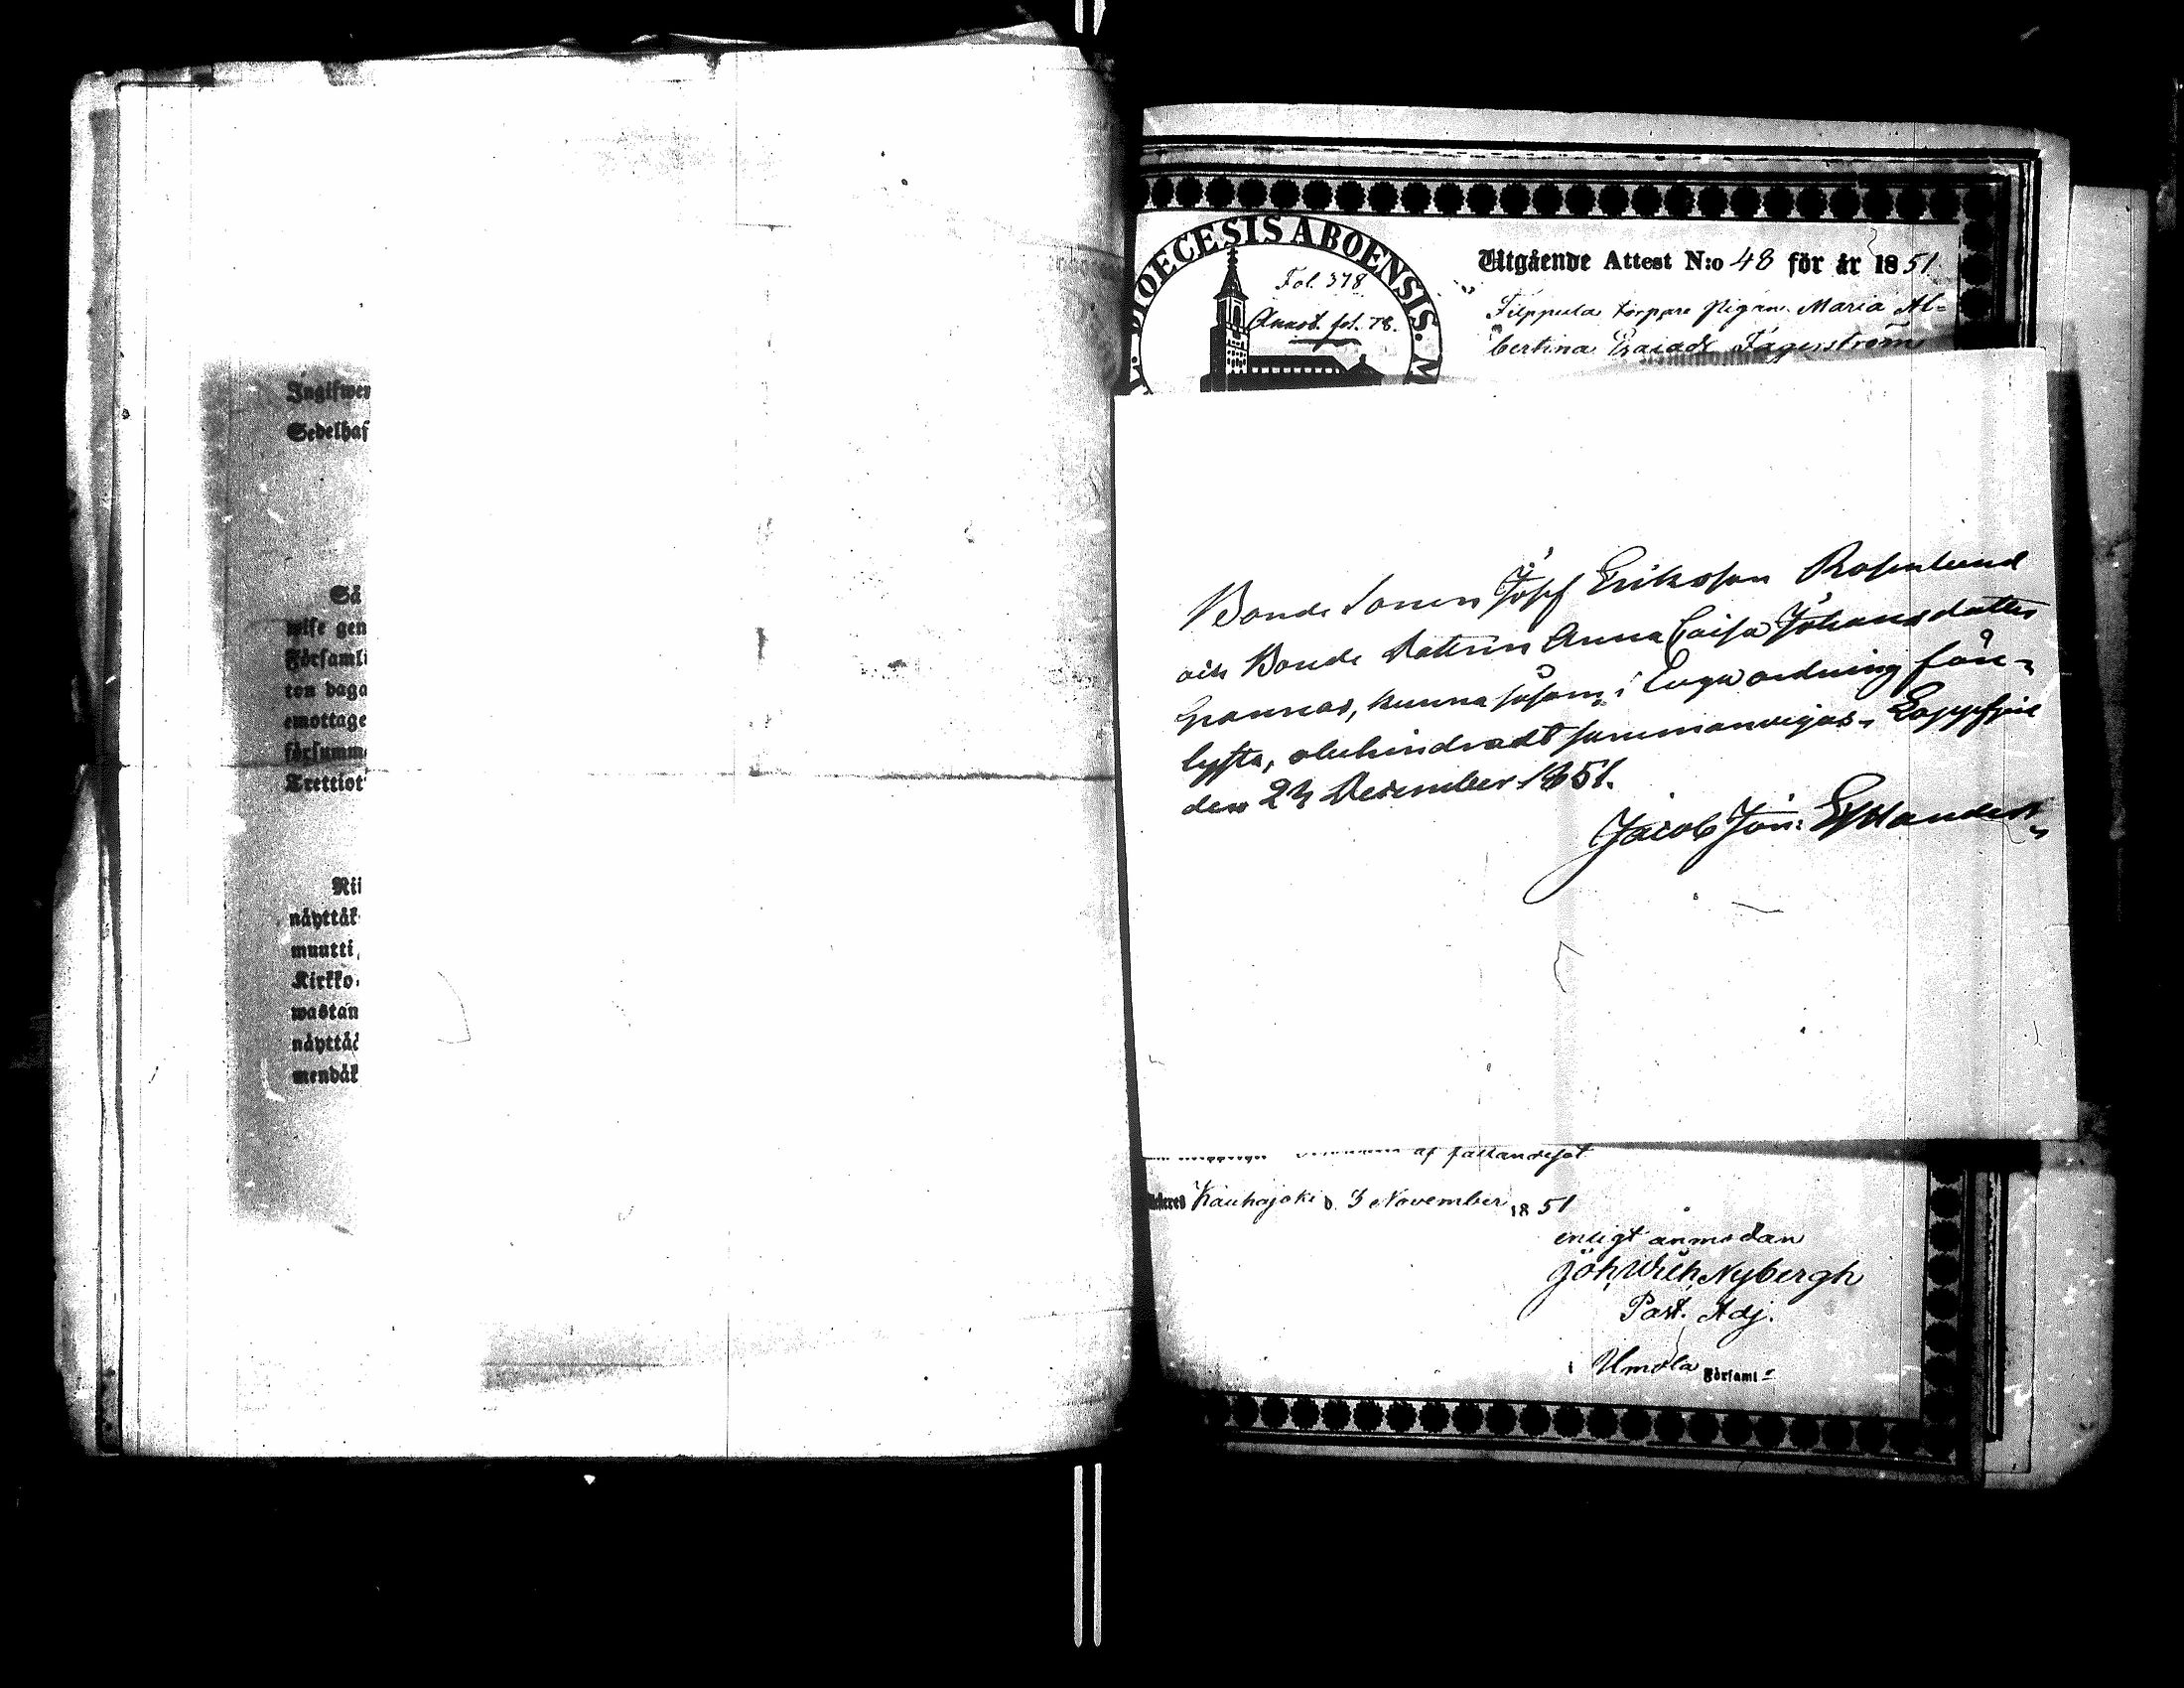 Ingifwen
Sedelhaf
Så
wise gen
Församli
ten daga
emottage
försumm
Trettiot
Nii
näyttäk
muutti,
Kirkko-
wastan
näyttää
mendäk
DIOECESIS ABOENSIS. M
Fol. 378
Annot. fol. 78.
Utgående Attest N:o 48 för år 1851
Filppula torpare pigan Maria Al-
bertina Esaiadr Fagerström
Bonde Sonen Josef Eriksson Rosenlund
och Bonde Dottren Anna Caisa Johansdotter
Grannas, kunna såsom i Lagu ordning fön-
lysta, obehindradt sammanvigas. Lappfjerd
den 23 December 1851.
Jacob Joh:
af fallandesot
Kauhajoki d. 3 November 1851
enligt anmodan
Joh. Wilh. Nybergh
Past. Adj.
i Umola Församl